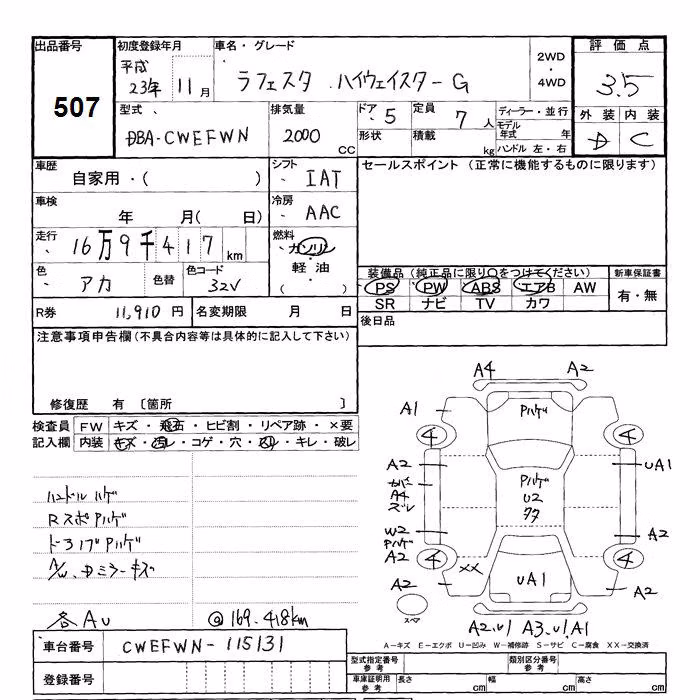 出品番号 初度登録年月 車名・グレード 評価点
507
平成 23年 11月
ラフェスタ ハイウェイスターG
2WD・4WD
3.5
型式 排気量 ドア 5 定員 7人 ディーラー・並行
外装 内装
DBA-CWEFWN 2000 CC
形状 積載 kg モデル年式 年
ハンドル 左・右
D C
車歴 自家用・( ) シフト IAT セールスポイント (正常に機能するものに限ります)
車検 年 月( 日) 冷房 AAC
走行 16万9千417km 燃料 ガソリン・軽油 ( )
色 アカ 色替 色コード 32V
装備品(純正品に限り○をつけてください) 新車保証書
PS PW ABS エアB AW 有・無
SR ナビ TV カワ
R券 11,910円 名変期限 月 日
後日品
注意事項申告欄(不具合内容等は具体的に記入して下さい)
修復歴 有 〔箇所 〕
検査員記入欄 FW キズ・飛石・ヒビ割・リペア跡・×要
内装 キズ・汚レ・コゲ・穴・スリ・キレ・破レ
A4 A2
A1 Pハゲ
4 4
A2 UA1
カバー A4 ズレ
Pハゲ U2 タタ
W2 Pハゲ A2
A2
4 4
XX
A2 UA1 A2
スペア
A2.U1 A3.U1.A1
ハンドルハゲ
RスポPハゲ
ドアノブPハゲ
A/W、Dミラーキズ
各AU @169.418km
A-キズ E-エクボ U-凹み W-補修跡 S-サビ C-腐食 XX-交換済
車台番号 CWEFWN-115131
登録番号
型式指定番号 参考 類別区分番号 参考
車庫証明用 参考 長さ cm 幅 cm 高さ cm